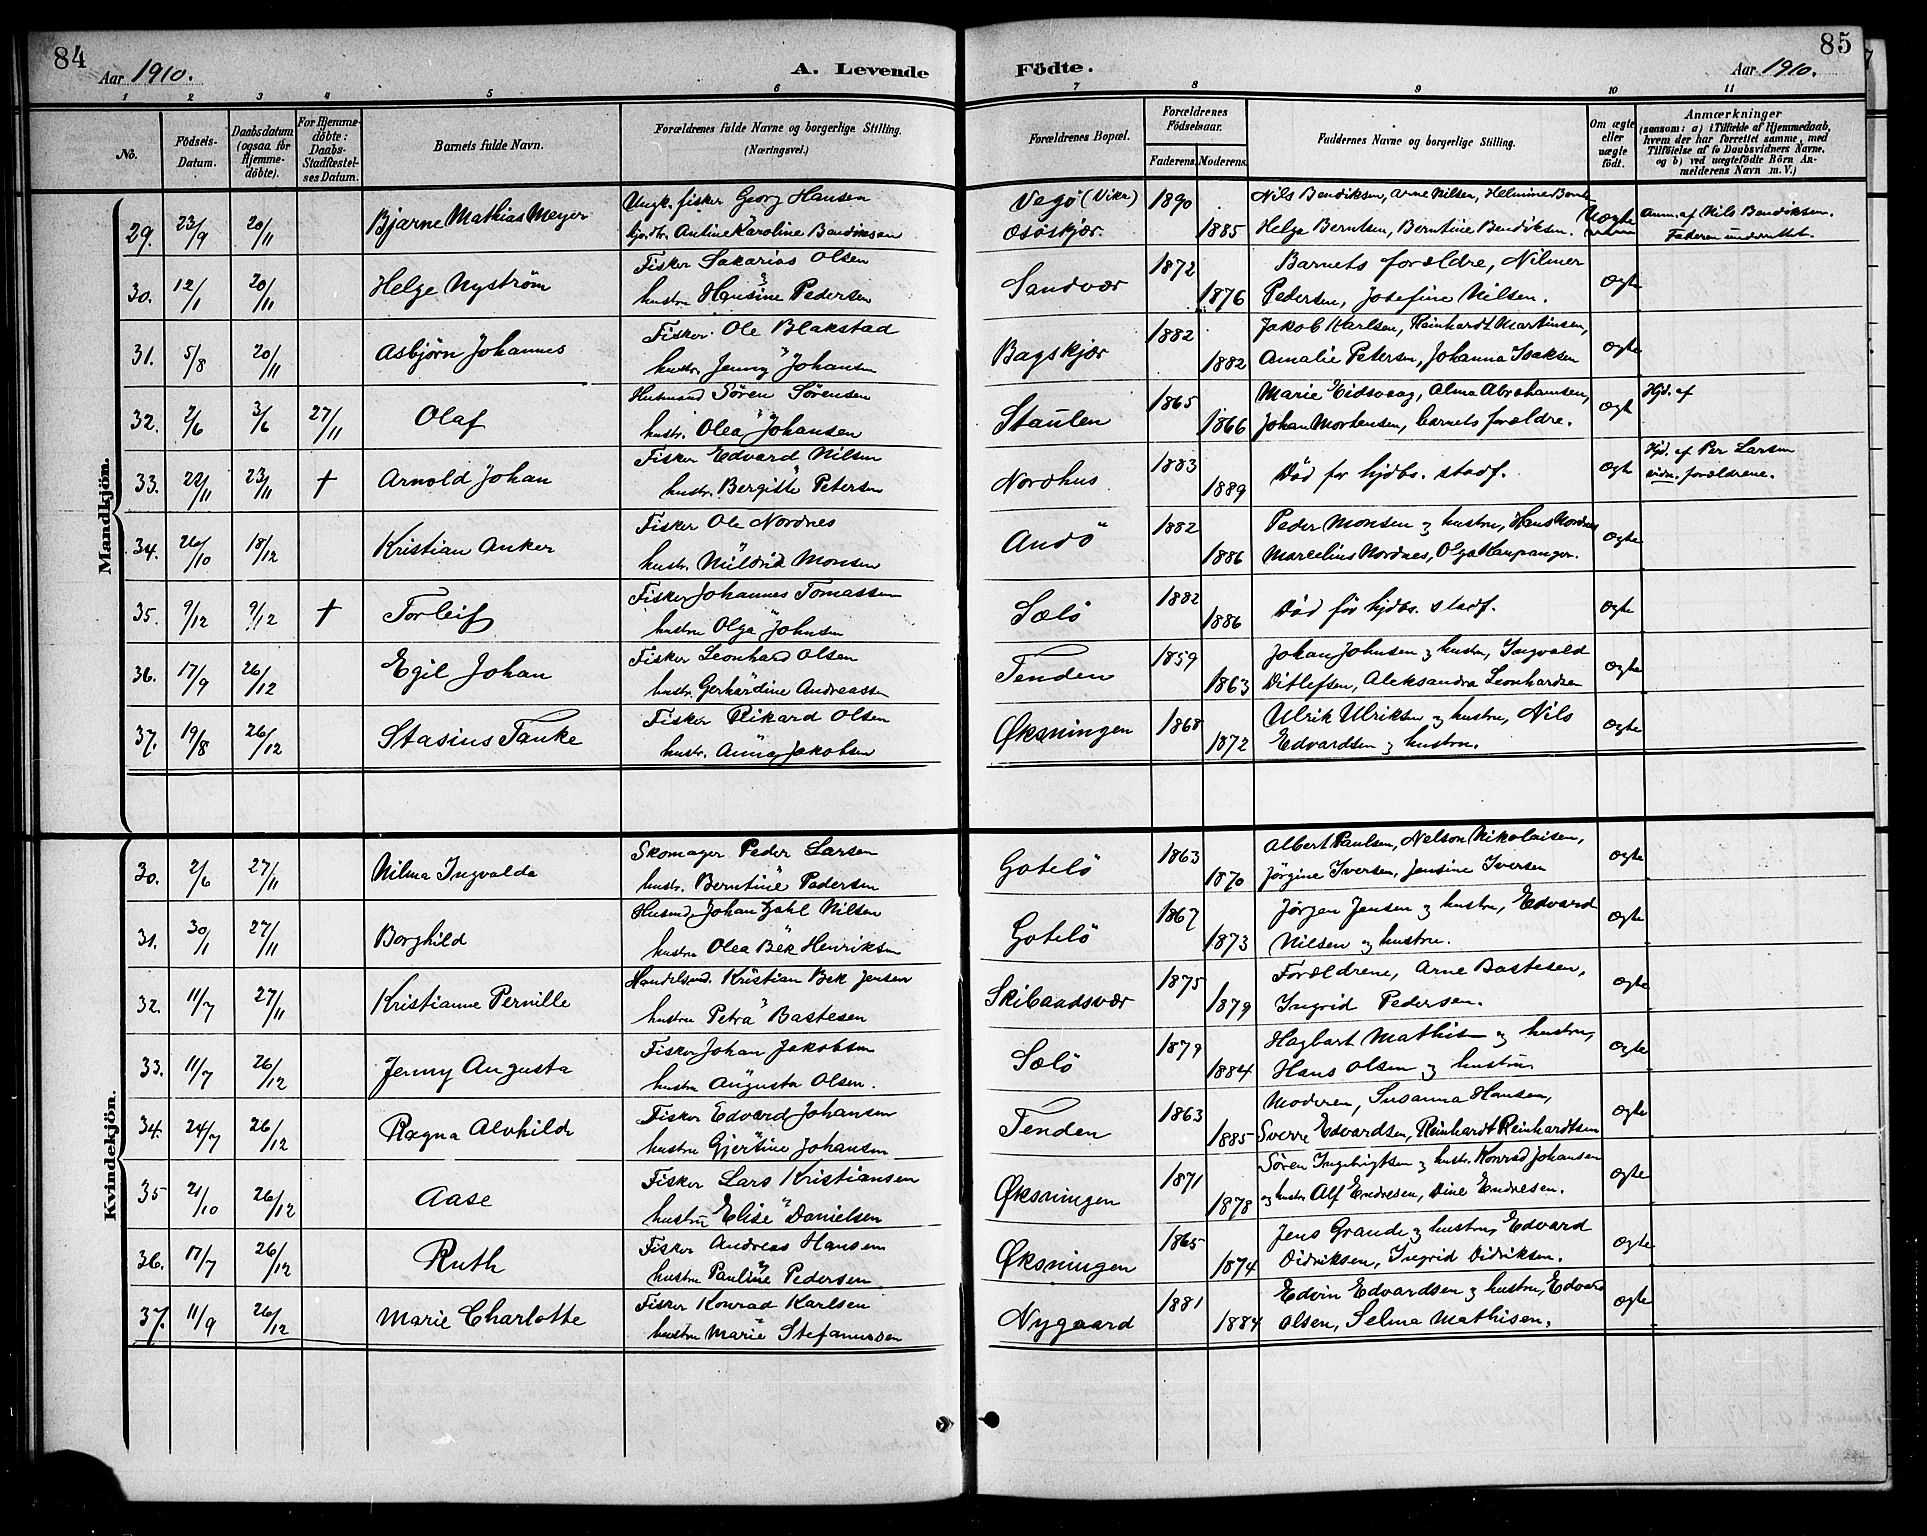 84
Aar 1910.
A. Levende
Födte.
Aar 1910.
85
1 2 3 4 5 6 7 8 9 10 11
No.
Födsels-
Datum.
Daabsdatum
(ogsaa for
Hjemme-
döbte).
For Hjemme-
döbte:
Daabs-
Stadfæstel-
ses Datum.
Barnets fulde Navn.
Forældrenes fulde Navne og borgerlige Stilling.
(Næringsvei.)
Forældrenes Bopæl.
Forældrenes
Födselsaar.
Faderens. Moderens.
Faddernes Navne og borgerlige Stilling.
Om ægte
eller
uægte
født.
Anmærkninger
(saasom: a) i Tilfælde af Hjemmedaab,
hvem der har forrettet samme, med
Tilföielse af to Daabsvidners Navne,
og b) ved uægtefödte Börn An-
melderens Navn m. V.)
Mandkjön.
29. 23/9 20/11 Bjarne Mathias Meyer Ungk. fisker Georg Hansen Vegø (Vikr) 1890 Nils Bendiksen, Arne Nilsen, Helmine Bernt
Antine Karoline Bendiksen Osöskjær 1885 Helga Berntsen, Berntine Bendiksen. Uægte Anm. af Nils Bendiksen.
Faderen underrettet.
30. 12/1 20/11 Helge Nyström Fisker Sakarias Olsen Sandvær 1872 Barnets forældre, Nilmer ægte
hustru Hansine Pedersen 1876 Pedersen, Josefine Nilsen.
31. 5/8 20/11 Asbjörn Johannes Fisker Ole Blakstad Bagskjær 1882 Jakob Karlsen, Reinhardt Martinsen, ægte
hustr. Jenny Johansen 1882 Amalie Petersen, Johanna Isaksen
32. 2/6 3/6 27/11 Olaf Husmand Sören Sörensen Staulen 1865 Marie Eidsvaag, Alma Abrahamsen, ægt Hjd. af
hustr. Olea Johansen 1866 Johan Mortensen, barnets forældre.
33. 22/11 23/11 † Arnold Johan Fisker Edvard Nilsen Nordhus 1883 Död før hjdbs. stadf. ægt Hjd. af Per Larsen
hustru Bergitte Petersen 1889 vidn. forældrene.
34. 26/10 18/12 Kristian Anker Fisker Ole Nordnes Andö 1882 Peder Monsen og hustru, Hans Nordnes ægte
hustr. Mildrid Monsen 1886 Marcelius Nordnes, Olga Kaupanger.
35. 9/12 9/12 † Torleif Fisker Johannes Tomassen Sælö 1882 Död för hjdbs. stadf. ægte
hustru Olga Johnsen 1886
36. 17/9 26/12 Egil Johan Fisker Leonhard Olsen Tenden 1859 Johan Johnsen og hustru, Ingvald ægte
hustr. Gerhardine Andreassen 1863 Ditlefsen, Aleksandra Leonhardsen
37. 19/8 26/12 Stasius Tanke Fisker Rikard Olsen Øksningen 1868 Ulrik Ulriksen og hustru, Nils ægte
hustr. Anna Jakobsen 1872 Edvardsen og hustru.
Kvindekjön.
30. 2/6 27/11 Nilma Ingvalda Skomager Peder Larsen Gotelö 1863 Albert Paulsen, Nelson Nikolaisen, ægte
hustr. Berntine Pedersen 1870 Jørgine Iversen, Jensine Iversen
31. 30/1 27/11 Borghild Husmd. Johan Zahl Nilsen Gotelö 1867 Jørgen Jensen og hustru, Edvard ægte
hustru Olea Bek Henriksen 1873 Nilsen og hustru.
32. 11/7 27/11 Kristianne Pernille Handelsmd. Kristian Bek Jensen Skibaadsvær 1875 Forældrene, Arne Bastesen, ægte
hustru Petra Bastesen 1879 Ingrid Pedersen.
33. 11/7 26/12 Jenny Augusta Fisker Johan Jakobsen Sælö 1879 Hagbart Mathisen og hustru, ægte
hustru Augusta Olsen. 1884 Hans Olsen og hustru
34. 24/7 26/12 Ragna Alvhilde Fisker Edvard Johansen Tenden 1863 Moderen, Susanna Hansen, ægte
hustru Gjertine Johansen 1885 Sverre Edvardsen, Reinhardt Reinhardtsen
35 21/10 26/12 Aase Fisker Lars Kristiansen Øksningen 1871 Sören Ingebrigtsen og hustr. Konrad Johansen ægte
hustru Elise Danielsen 1878 og hustr Alf Endresen, Dine Endresen.
36. 17/7 26/12 Ruth Fisker Andreas Hansen Øksningen 1865 Jens Grande og hustru, Edvard ægte
hustru Pauline Pedersen 1874 Didriksen, Ingrid Didriksen.
37. 11/9 26/12 Marie Charlotte Fisker Konrad Karlsen Nygaard 1881 Edvin Edvardsen og hustru, Edvard ægte
hustru Marie Stefanussen 1884 Olsen, Selma Mathisen.